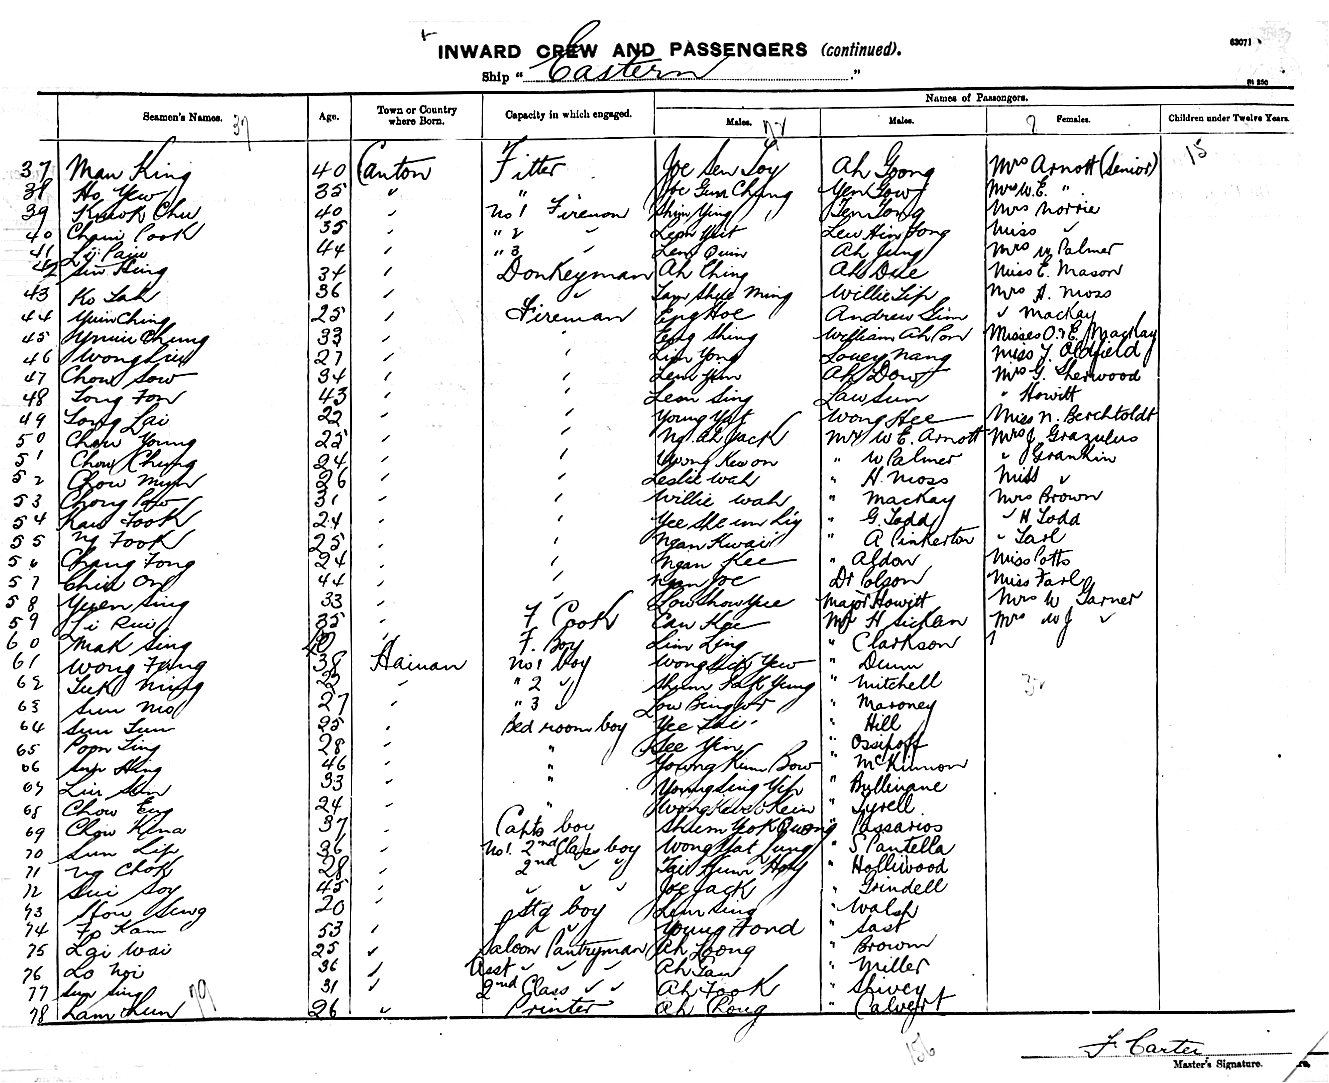 INWARD CREW AND PASSENGERS (continued).
63071
Ship "Eastern"
Names of Passengers.
Seamen's Names. Age. Town or Country where Born. Capacity in which engaged. Males. Males. Females. Children under Twelve Years.
15
37 Man King 40 Canton Fitter Joe Sen Loy Ah Goong Mrs Arnott (Senior)
38 Ho Yew 35 " " Joe Gum Chung Yen Gow Mrs W.E. "
39 Kwok Chu 40 " No 1 Fireman Shim Ying Mrs Norrie
40 Cham Cook 35 " " 2 " Leon Yeit Lew Hin Fong Miss "
41 44 " " 3 " Ah Jung Mrs W Palmer
42 Sin Hing 34 " Donkeyman Ah Ching Ah Due Miss E. Mason
43 Ko Tak 36 " " Tam Shue Ming Willie Lip Mrs H. Moss
44 Yuin Ching 25 " Fireman Eng Hoe Andrew Gim " Mackay
45 Chung 33 " " Eng Shing William Ah Pon Misses O. & E. Mackay
46 Wong 27 " " Lim Yong Louey Nang Miss Y. Oldfield
47 Chow Sow 34 " " Lem Yem Ah Dow Mrs G. Sherwood
48 Tong Fon 43 " " Leon Sing Law Sun " Howitt
49 Tong Lai 22 " " Young Yat Wong Hee Miss N. Berchtoldt
50 Chow Young 22 " " Ng Ah Jack Mr W E. Arnott Mrs J Grazulus
51 Chow Chung 24 " " Wong Kew on " W Palmer " Grankin
52 Chow 26 " " Leslie Wah " H. Moss Miss "
53 Chong 31 " " Willie Wah " Mackay Mrs Brown
54 Kau Fook 24 " " Yee She un Lig " G. Todd " H Todd
55 Ng Fook 25 " " Ngan Kwai " A Pinkerton " Tarl
56 Chang Fong 24 " " Ngan Kee " Aldon Miss Potts
57 Chid On 44 " " Ngan Joe Dr Colson Miss Farl
58 Yuen Sing 33 " Low Show Yee Major Howitt Mrs W Garner
59 35 " F Cook Can Kee Mr H Sickan Mrs W J "
60 Mak Sing 40 " F. Boy Lim Ling " Clarkson
61 Wong Fang 38 Hainan No 1 boy Wong Yew " Dunn
62 Tuk Ming 23 " " 2 " Shum Tak Yung " Mitchell
63 Sun Mo 27 " " 3 " Low Bing " Maroney
64 Sun Lun 25 " Bed room boy Yee Tai " Hill
65 Popn Ling 28 " " See Yin " Ossipoff
66 Sun Hing 46 " " Young Kum Bow " McKinnon
67 Lin Sun 33 " " Young Sing Yip " Bullivane
68 Chow Eng 24 " " Wong " Tyrell
69 Chow Kena 37 " Capts boy Shum Yok Quong " Passarios
70 Sun Lip 36 " No 1. 2nd Class boy Wong Yat Jung " S Pantella
71 Ng Chok 28 " 2nd " " Tai Kum Hoy " Holliwood
72 Sui Soy 45 " " " " Joe Jack " Grindell
73 How Seng 20 " Stg boy Lem Sing " Walsh
74 Fo Kam 53 " " " Young Fond " East
75 Lai Wai 25 " Saloon Pantryman Ah Loong " Brown
76 Lo Noi 36 " Asst " " " Ah Tau " Miller
77 Sun Sing 31 " 2nd Class " " Ah Fook " Shivey
78 Lam Lun 26 " Printer Ah Chong " Calvert
156
F. Carter
Master's Signature.